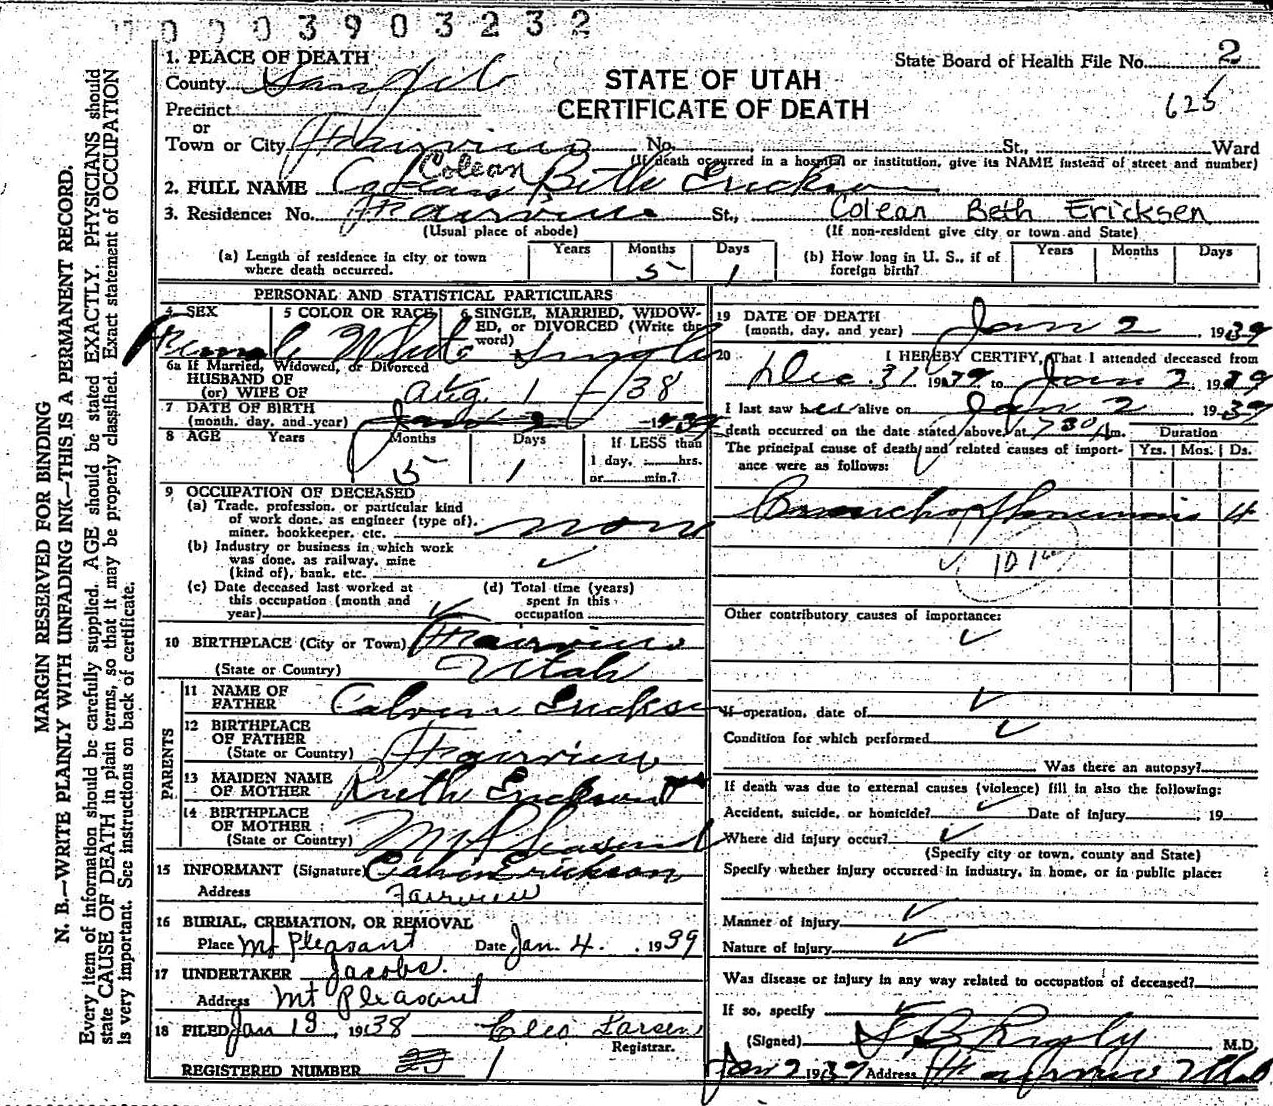 0003903232
1. PLACE OF DEATH
County Sanpete
Precinct
or
Town or City Fairview No. St., Ward
(If death occurred in a hospital or institution, give its NAME instead of street and number)
STATE OF UTAH
CERTIFICATE OF DEATH
State Board of Health File No. 2
625
Colean
2. FULL NAME Colean Beth Erickson
3. Residence: No. Fairview St., Colean Beth Ericksen
(Usual place of abode) (If non-resident give city or town and State)
(a) Length of residence in city or town where death occurred. Years Months 5 Days 1
(b) How long in U. S., if of foreign birth? Years Months Days
PERSONAL AND STATISTICAL PARTICULARS
4 SEX Female
5 COLOR OR RACE White
6 SINGLE, MARRIED, WIDOWED, or DIVORCED (Write the word) Single
6a If Married, Widowed, or Divorced
HUSBAND OF
(or) WIFE OF
Aug. 1 - /38
7 DATE OF BIRTH
(month, day, and year) Jan 2 - 1939
8 AGE Years Months 5 Days 1 If LESS than
1 day, hrs.
or min.?
9 OCCUPATION OF DECEASED
(a) Trade, profession, or particular kind
of work done, as engineer (type of),
miner, bookkeeper, etc. none
(b) Industry or business in which work
was done, as railway, mine
(kind of), bank, etc. ✓
(c) Date deceased last worked at
this occupation (month and
year) ✓
(d) Total time (years)
spent in this
occupation
10 BIRTHPLACE (City or Town) Fairview
(State or Country) Utah
PARENTS
11 NAME OF
FATHER Calvin Erickson
12 BIRTHPLACE
OF FATHER
(State or Country) Fairview
13 MAIDEN NAME
OF MOTHER Ruth Erickson
14 BIRTHPLACE
OF MOTHER
(State or Country) Mt Pleasant
15 INFORMANT (Signature) Calvin Erickson
Address Fairview
16 BURIAL, CREMATION, OR REMOVAL
Place Mt Pleasant Date Jan. 4. 1939
17 UNDERTAKER Jacobs.
Address Mt Pleasant
18 FILED Jan 13, 1938 Cleo Larsen
Registrar.
REGISTERED NUMBER 1
19 DATE OF DEATH
(month, day, and year) Jan 2 1939
20 I HEREBY CERTIFY, That I attended deceased from
Dec. 31 1939 to Jan 2, 1939
I last saw her alive on Jan 2, 1939
death occurred on the date stated above, at 730 Am.
Duration
The principal cause of death and related causes of importance were as follows: Yrs. Mos. Ds.
Bronchopneumonia 4
✓
Other contributory causes of importance:
✓
If operation, date of ✓
Condition for which performed ✓
Was there an autopsy?
If death was due to external causes (violence) fill in also the following:
Accident, suicide, or homicide? ✓ Date of injury , 19
Where did injury occur? ✓
(Specify city or town, county and State)
Specify whether injury occurred in industry, in home, or in public place:
Manner of injury ✓
Nature of injury ✓
Was disease or injury in any way related to occupation of deceased?
If so, specify ✓
(Signed) M.D.
Jan 2 1939 Address Fairview Utah
MARGIN RESERVED FOR BINDING
N. B.—WRITE PLAINLY WITH UNFADING INK—THIS IS A PERMANENT RECORD.
Every item of information should be carefully supplied. AGE should be stated EXACTLY. PHYSICIANS should
state CAUSE OF DEATH in plain terms, so that it may be properly classified. Exact statement of OCCUPATION
is very important. See instructions on back of certificate.